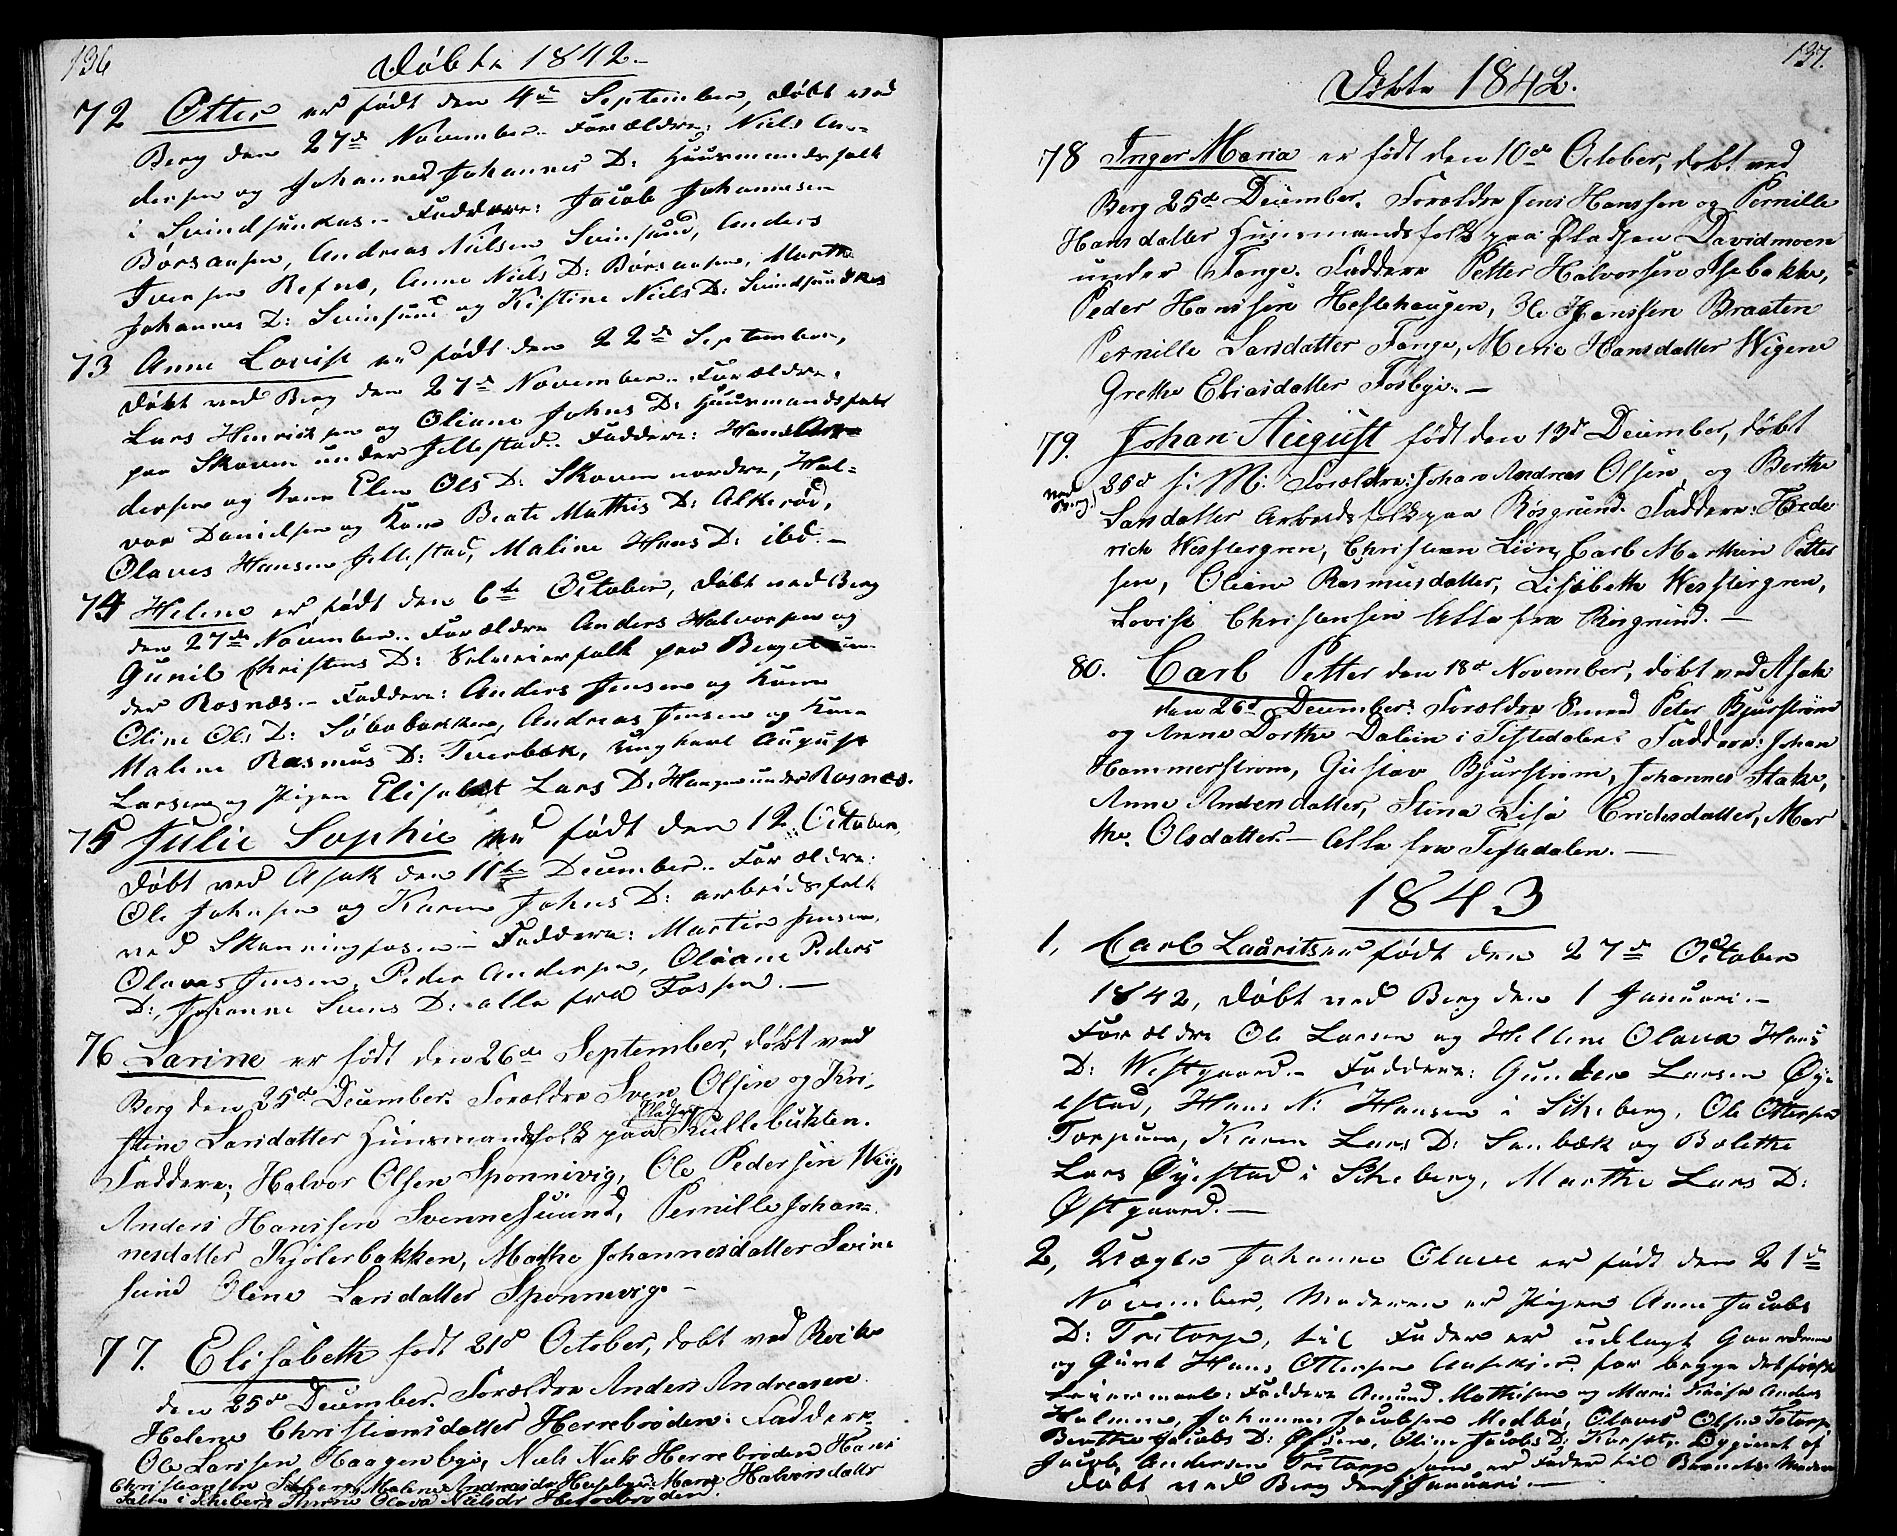 136
Döbte 1842.-
72 Otter er födt den 4de September, döbt ved
Berg den 27de November. Forældre: Niels An-
dersen og Johannes Johannes D: Huusmandsfolk
i Svindsundas.- Faddere: Jacob Johannesen
Börsausen, Andreas Nielsen Svinsund, Anders
Iversen Refne, Anne Niels D: Börsausen, Marthe
Johannes D: Svinsund og Kistine Niels D: Svindsundkas
73 Anne Lovise er födt den 22de September,
döbt ved Berg den 27de November.. Forældre:
Lars Henriksen og Oliane Johns D: Huusmandsfolk
paa Skoven under Jellestad.. Faddere: Hans An-
dersen og Kone Elen Ols D: Skoven nordre, Hal-
vor Danielsen og Kone Beate Mathis D: Alkeröd,
Olaves Hansen Jellestad, Maline Hans D: ibd.-
74 Helene er födt den 6te October, döbt ved Berg
den 27de November.. Forældre Anders Halvorsen og
Gunil Christens D: Selveierfolk paa Berget un-
der Rosnæs.- Faddere: Anders Jensen og Kone
Oline Ols D: Söbobakken, Andreas Jensen og Kone
Malene Rasmus D: Tverbæk, Ungkarl August
Larsen og Pigen Elisabet Lars D: Haugen under Rosnæs.
75 Julie Sophie er födt den 12 October,
döbt ved Asak den 11te December.. Forældre:
Ole Johnsen og Karen Johns D: arbeidsfolk
ved Skonningfosen.- Faddere: Martin Jensen,
Olaves Jensen, Peder Andersen, Oleane Peders
D:, Johanne Svens D: alle fra Fossen.-
76 Larine er födt den 26de September, döbt ved
Berg den 25de December. Forældre Sven Olsen og Kri-
stine Larsdatter Huusmandsfolk paa Pladsen Kullebukten.
Faddere; Halvor Olsen Sponnivig, Ole Pedersen Wiig,
Anders Hanssen Svennesuund, Pernille Johan-
nesdatter Kjölerbakken, Mathe Johannesdatter Svine
sund Oline Larsdatter Sponnevig.-
77. Elisabeth födt 21de October, döbt ved Rokke
den 25de December. Forældre Anders Andreasen
Helene Christiansdatter Herrebröden: Faddere
Ole Larssen Haagenbye, Niels Niels Herrebröden Hans
Christiansen Maline Andreasdr Marie Halvorsdatter
i Skeberg Olava Nielsdr Herrebröden.
137.
Döbte 1842.
78 Inger Maria er födt den 10de October, döbt ved
Berg 25de December. Forældre Jens Hanssen og Pernille
Hansdatter Huusmandsfolk paa Pladsen Davidmoen
under Tange. Faddere Petter Halvorsen Isebakke,
Peder Hanssen Hestehaugen, Ole Hanssen Braaten
Pernille Larsdatter Tange, Marie Hansdatter Wigene
Grethe Eliasdatter Fosbye.-
79. Johan August födt den 13de December, döbt
ved Berg 25de s: M: Forældre: Johan Andreas Olsen og Berthe
Larsdatter Arbeidsfolk paa Rösgrund. Faddere: Frede
rich Westergren, Christian Lien, Carl Marthin Petter
sen, Oliane Rasmusdatter, Lisabeth Westergren,
Lovise Christensen Alle fra Rösgrund.-
80. Carl Petter den 18de November, döbt ved Asak
den 26de December. Forældre Smed Peter Bjurström
og Anne Dorthe Dalien i Tistedalen: Faddere: Johan
Hammerström, Gustav Bjurström, Johannes Stake,
Anne Andersdatter, Stina Lisa Erichsdatter, Mar
the Olsdatter.- Alle fra Tistedalen.-
1843
1, Carl Laurits er födt den 27de October
1842, döbt ved Berg den 1 Januari.-
Forældre Ole Larsen og Hellene Olava Hans
D: Westgaard.- Faddere: Gunder Larsen Øy-
estad, Hans N: Hansen i Skeberg, Ole Ottersen
Torpum, Karen Lars D: Sanbæk og Bolethe
Lars Øyestad i Skeberg, Marthe Lars D:
Østgaard.-
2, Uægte Johanne Olave er födt den 21de
November, Moderen er Pigen Anne Jacobs
D: Tretorp, til Fader er udlagt Gaardmand
og Givt Hans Ottersen for begge det förste
Leiermaal: Faddere Amund Mathisen og Anders
Holmen, Johannes Jacobsen Medbö, Olaves Olsen Tetorp
Berthe Jacobs D: Oline Jacobs D: Opgivet af
Jacob Andersen Tretorp som er Fader til Barnets Moder
döbt ved Berg den 1 Januari.-